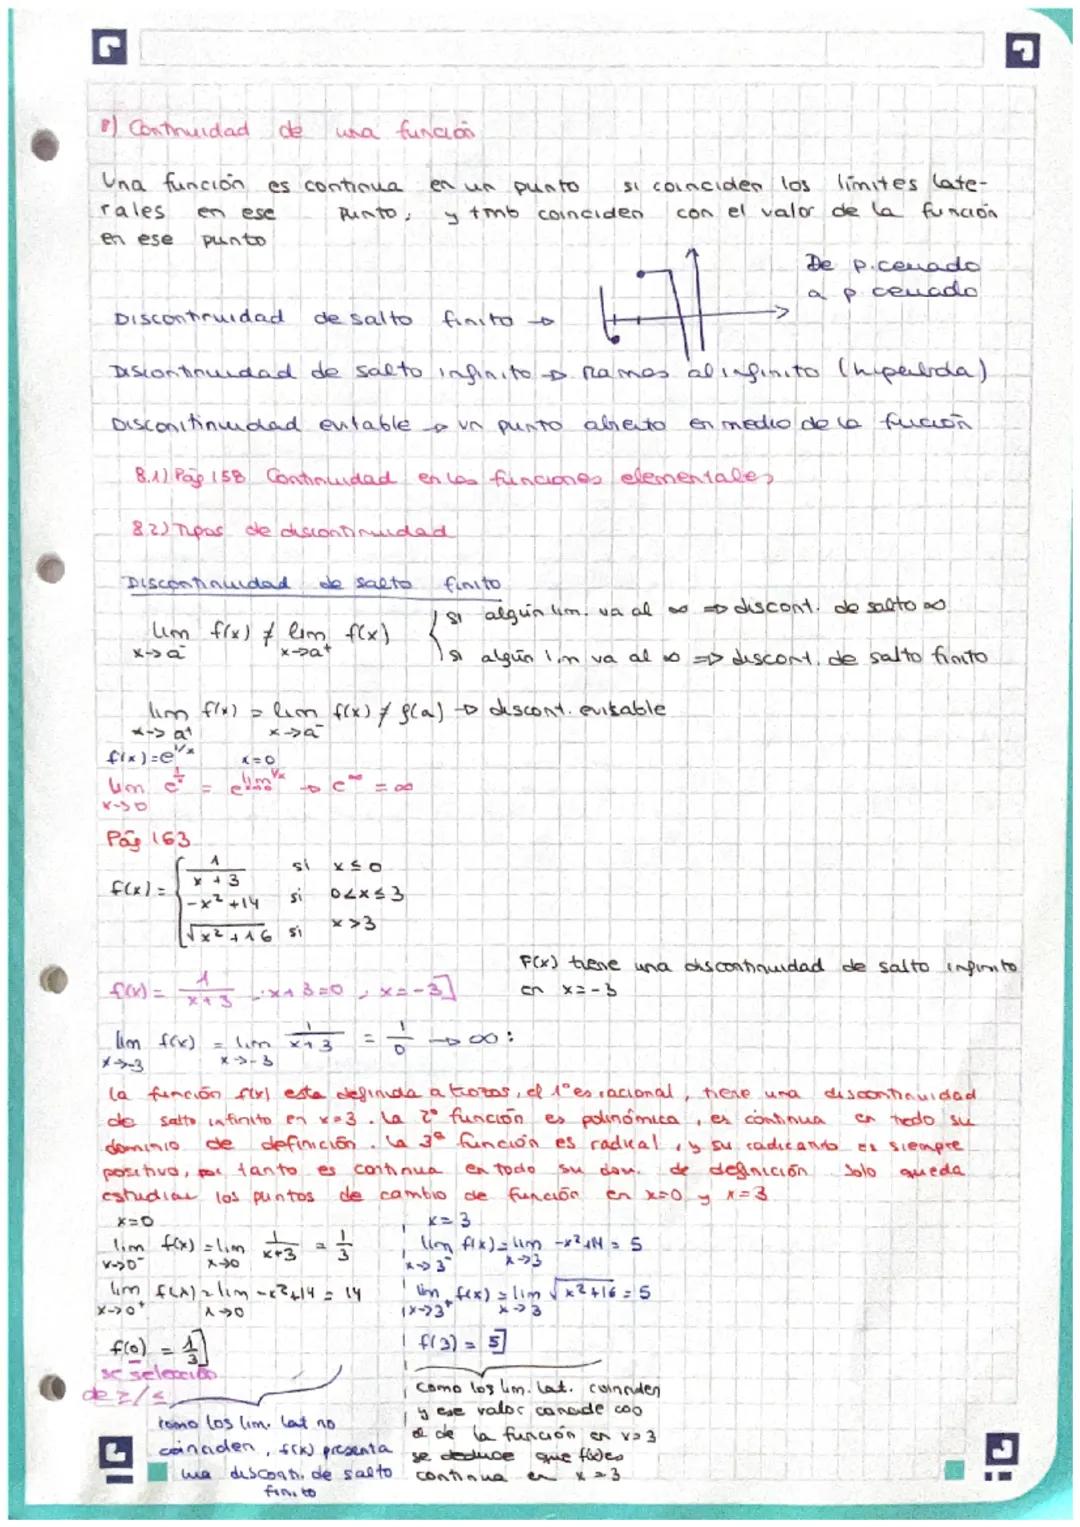 8) Continuidad de una función
Una función es continua en un punto si coinciden los límites late-
rales en ese punto, y tmb coinciden con el valor de la función
en ese punto
De p.cerrado
a p cerrado
Discontinuidad de salto finito →
Discontinuidad de salto infinito → Ramas al infinito (hipérbola)
Disconitinuidad evitable → un punto abierto en medio de la fución
8.1) Pág 158 Continuidad en las funciones elementales
8.2) Tipos de discontinuidad
Discontinuidad de salto finito
lim f(x) ≠ lim f(x)
x→a⁻ x→a⁺
si algún lim. va al ∞ => discont. de salto ∞
si algún lim va al ∞ => discont. de salto finito
lim f(x) = lim f(x) ≠ f(a) → discont. evitable
x→a⁺ x→a⁻
f(x)=e^1/x x=0
lim e^1/x = e^lim 1/x → e^∞ = ∞
x→0 x→0
Pág 163
f(x) = { 1/(x+3) si x ≤ 0
-x²+14 si 0<x≤3
√x²+16 si x>3
F(x) tiene una discontinuidad de salto infinito
en x=-3
f(x) = 1/(x+3) ; x+3=0, x=-3]
lim f(x) = lim 1/(x+3) = 1/0 → ∞:
x→-3 x→-3
la función f(x) esta definida a trozos, el 1º es racional, tiene una discontinuidad
de salto infinito en x=3. La 2º función es polinómica, es continua en todo su
dominio de definición. La 3ª función es radical, y su radicando es siempre
positivo, por tanto es continua en todo su dom. de definición Solo queda
estudiar los puntos de cambio de función en x=0 y x=3
x=0
lim f(x) = lim 1/(x+3) = 1/3
x→0⁻ x→0
lim f(x) = lim -x²+14 = 14
x→0⁺ x→0
f(0) = 1/3]
se selección
de ≥/≤
como los lim. lat no
coinciden, f(x) presenta
una discoti. de salto
finito
x=3
lim f(x) = lim -x²+14 = 5
x→3⁻ x→3
lim f(x) = lim √x²+16 = 5
x→3⁺ x→3
f(3) = 5]
como los lim. lat. coinciden
y ese valor concide con
el de la función en x=3
se deduce que f(x) es
continua en x=3